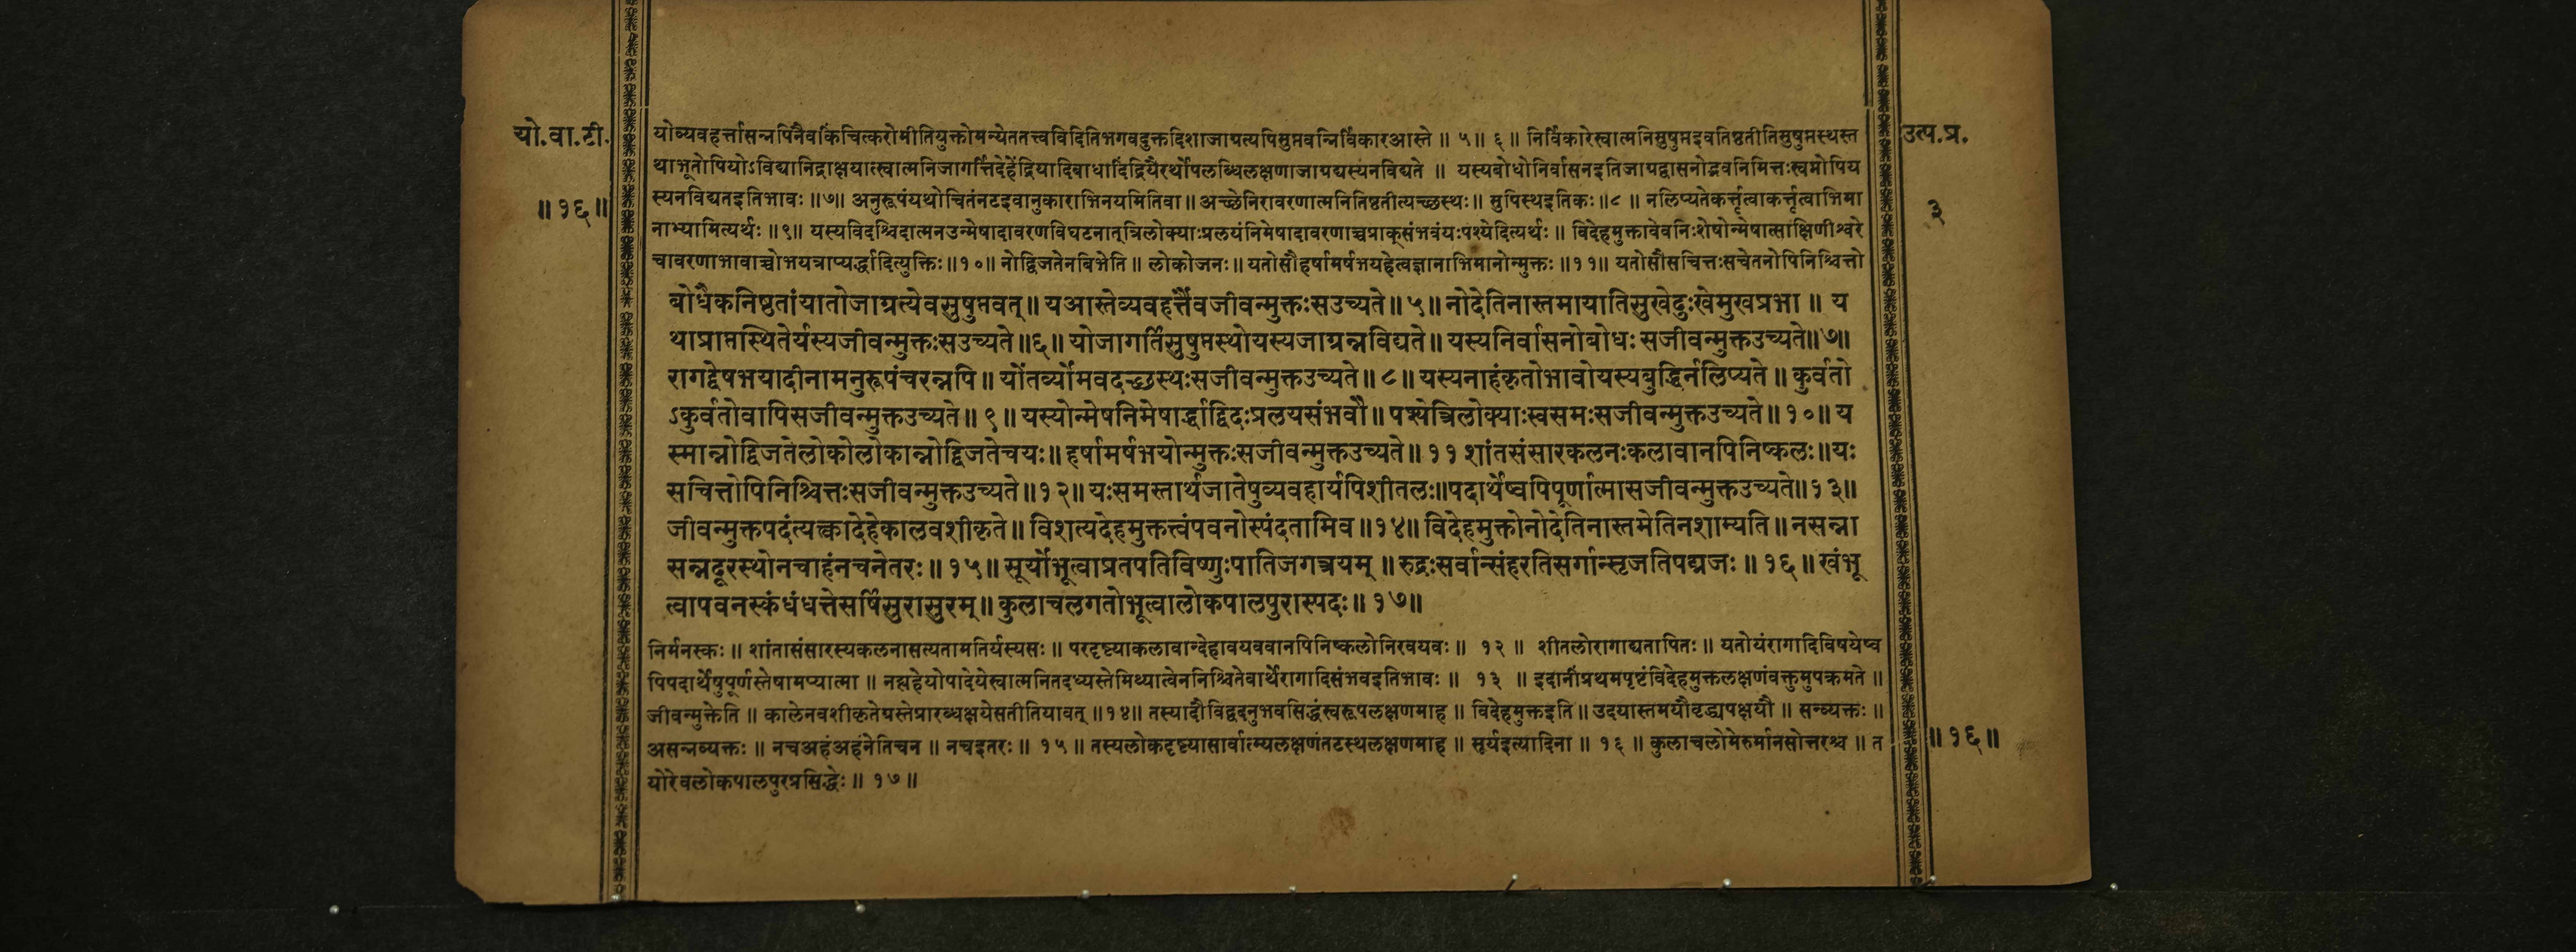 यो.वा.टी.
॥१६॥
उत्प.प्र.
३
योव्यवहर्त्तासन्नपिनैवकिंचित्करोमीतियुक्तोमन्येततत्त्वविदितिभगवदुक्तदिशाजाग्रत्यपिसुप्तवन्निर्विकारआस्ते ॥ ५॥ ६ ॥ निर्विकारेस्वात्मनिसुषुप्तइवतिष्ठतीतिसुषुप्तस्थस्त
थाभूतोपियोऽविद्यानिद्राक्षयात्स्वात्मनिजागर्त्तिदेहेंद्रियादिबाधादिंद्रियैरर्थोपलब्धिलक्षणाजाग्रद्यस्यनविद्यते ॥ यस्यबोधोनिर्वासनइतिजाग्रद्वासनोद्भवनिमित्तःस्वप्नोपिय
स्यनविद्यतइतिभावः ॥७॥ अनुरूपंयथोचितंनटइवानुकाराभिनयमितिवा॥ अच्छेनिरावरणात्मनितिष्ठतीत्यच्छस्थः॥ सुपिस्थइतिकः॥८ ॥ नलिप्यतेकर्त्तृत्वाकर्त्तृत्वाभिमा
नाभ्यामित्यर्थः ॥९॥ यस्यविदश्चिदात्मनउन्मेषादावरणविघटनात्त्रिलोक्याःप्रलयंनिमेषादावरणाच्चप्राक्संभवंयःपश्येदित्यर्थः ॥ विदेहमुक्तावेवनिःशेषोन्मेषात्साक्षिणीश्वरे
चावरणाभावाच्चोभयत्राप्यर्द्धादित्युक्तिः॥१०॥ नोद्विजतेनबिभेति ॥ लोकोजनः॥ यतोसौहर्षामर्षभयहेत्वज्ञानाभिमानोन्मुक्तः ॥११॥ यतोसौसचित्तःसचेतनोपिनिश्चित्तो
बोधैकनिष्ठतांयातोजाग्रत्येवसुषुप्तवत्॥ यआस्तेव्यवहर्त्तैवजीवन्मुक्तःसउच्यते॥ ५॥ नोदेतिनास्तमायातिसुखेदुःखेमुखप्रभा ॥ य
थाप्राप्तस्थितेर्यस्यजीवन्मुक्तःसउच्यते॥६॥ योजागर्तिसुषुप्तस्थोयस्यजाग्रन्नविद्यते॥ यस्यनिर्वासनोबोधः सजीवन्मुक्तउच्यते॥७॥
रागद्वेषभयादीनामनुरूपंचरन्नपि॥ योंतर्व्योमवदच्छस्थःसजीवन्मुक्तउच्यते॥ ८॥ यस्यनाहंकृतोभावोयस्यबुद्धिर्नलिप्यते॥ कुर्वतो
ऽकुर्वतोवापिसजीवन्मुक्तउच्यते॥ ९॥ यस्योन्मेषनिमेषार्द्धाद्विदःप्रलयसंभवौ॥ पश्येत्त्रिलोक्याःस्वसमःसजीवन्मुक्तउच्यते॥ १०॥ य
स्मान्नोद्विजतेलोकोलोकान्नोद्विजतेचयः॥ हर्षामर्षभयोन्मुक्तःसजीवन्मुक्तउच्यते॥ ११ शांतसंसारकलनःकलावानपिनिष्कलः॥यः
सचित्तोपिनिश्चित्तःसजीवन्मुक्तउच्यते॥१२॥ यःसमस्तार्थजातेषुव्यवहार्यपिशीतलः॥पदार्थेष्वपिपूर्णात्मासजीवन्मुक्तउच्यते॥१३॥
जीवन्मुक्तपदंत्यक्त्वादेहेकालवशीकृते॥ विशत्यदेहमुक्तत्वंपवनोस्पंदतामिव॥१४॥ विदेहमुक्तोनोदेतिनास्तमेतिनशाम्यति॥ नसन्ना
सन्नदूरस्थोनचाहंनचनेतरः॥ १५॥ सूर्योभूत्वाप्रतपतिविष्णुःपातिजगत्त्रयम् ॥ रुद्रःसर्वान्संहरतिसर्गान्सृजतिपद्मजः ॥ १६॥ खंभू
त्वापवनस्कंधंधत्तेसर्षिसुरासुरम्॥ कुलाचलगतोभूत्वालोकपालपुरास्पदः॥ १७॥
निर्मनस्कः ॥ शांतासंसारस्यकलनासत्यतामतिर्यस्यसः ॥ परदृष्ट्याकलावान्देहावयववानपिनिष्कलोनिरवयवः ॥ १२ ॥ शीतलोरागाद्यतापितः ॥ यतोयंरागादिविषयेष्व
पिपदार्थेषुपूर्णस्तेषामप्यात्मा ॥ नह्यहेयोपादेयेस्वात्मनितदध्यस्तेमिथ्यात्वेननिश्चितेवार्थेरागादिसंभवइतिभावः ॥ १३ ॥ इदानींप्रथमपृष्टंविदेहमुक्तलक्षणंवक्तुमुपक्रमते ॥
जीवन्मुक्तेति ॥ कालेनवशीकृतेग्रस्तेप्रारब्धक्षयेसतीतियावत् ॥१४॥ तस्यादौविद्वदनुभवसिद्धंस्वरूपलक्षणमाह ॥ विदेहमुक्तइति॥ उदयास्तमयौवृद्ध्यपक्षयौ ॥ सन्व्यक्तः ॥
असन्नव्यक्तः ॥ नचअहंअहंनेतिचन ॥ नचइतरः ॥ १५ ॥ तस्यलोकदृष्ट्यासार्वात्म्यलक्षणंतटस्थलक्षणमाह ॥ सूर्यइत्यादिना ॥ १६ ॥ कुलाचलोमेरुर्मानसोत्तरश्च ॥ त
योरेवलोकपालपुरप्रसिद्धेः ॥ १७॥
॥१६॥